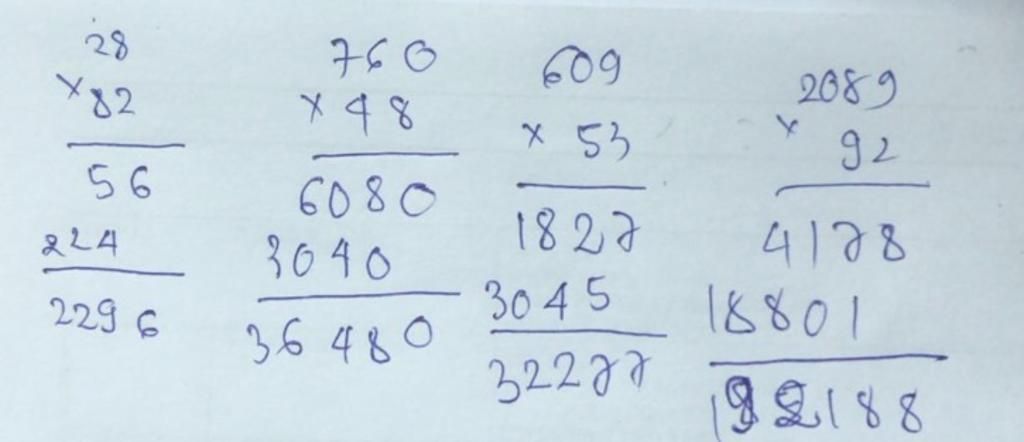 28
× 82
56
224
2296
760
× 48
6080
3040
36480
609
× 53
1827
3045
32277
2089
× 92
4178
18801
192188